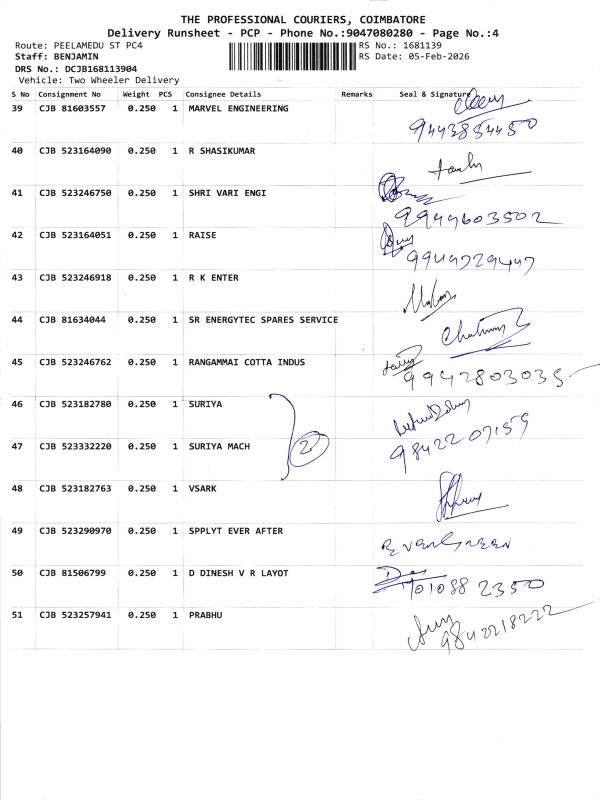 THE PROFESSIONAL COURIERS, COIMBATORE
Delivery Runsheet - PCP - Phone No.:9047080280 - Page No.:4
Route: PEELAMEDU ST PC4 RS No.: 1681139
Staff: BENJAMIN RS Date: 05-Feb-2026
DRS No.: DCJB168113904
Vehicle: Two Wheeler Delivery
S No Consignment No Weight PCS Consignee Details Remarks Seal & Signature
39 CJB 81603557 0.250 1 MARVEL ENGINEERING
9443854450
40 CJB 523164090 0.250 1 R SHASIKUMAR
41 CJB 523246750 0.250 1 SHRI VARI ENGI
9949603502
42 CJB 523164051 0.250 1 RAISE
9949729447
43 CJB 523246918 0.250 1 R K ENTER
44 CJB 81634044 0.250 1 SR ENERGYTEC SPARES SERVICE
45 CJB 523246762 0.250 1 RANGAMMAI COTTA INDUS
9942803035
46 CJB 523182780 0.250 1 SURIYA
2
47 CJB 523332220 0.250 1 SURIYA MACH
9842207159
48 CJB 523182763 0.250 1 VSARK
49 CJB 523290970 0.250 1 SPPLYT EVER AFTER
EVERGREEN
50 CJB 81506799 0.250 1 D DINESH V R LAYOT
7010882350
51 CJB 523257941 0.250 1 PRABHU
9842218222